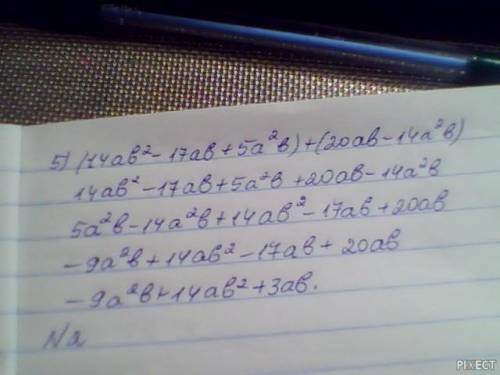 5) (14ab² - 17ab + 5a²b) + (20ab - 14a²b)
14ab² - 17ab + 5a²b + 20ab - 14a²b
5a²b - 14a²b + 14ab² - 17ab + 20ab
- 9a²b + 14ab² - 17ab + 20ab
- 9a²b + 14ab² + 3ab.
PIXECT